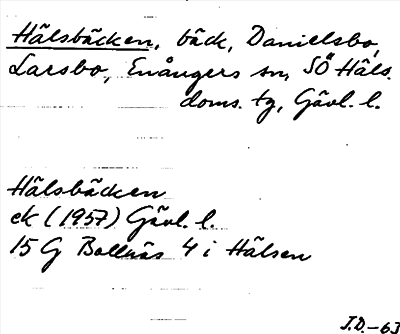 Hälsbäcken, bäck, Danielsbo,
Larsbo, Enångers sn, SÖ Häls.
doms. tg, Gävl. l.
Hälsbäcken
ek (1957) Gävl. l.
15 G Bollnäs 4 i Hälsen
J.D.-63